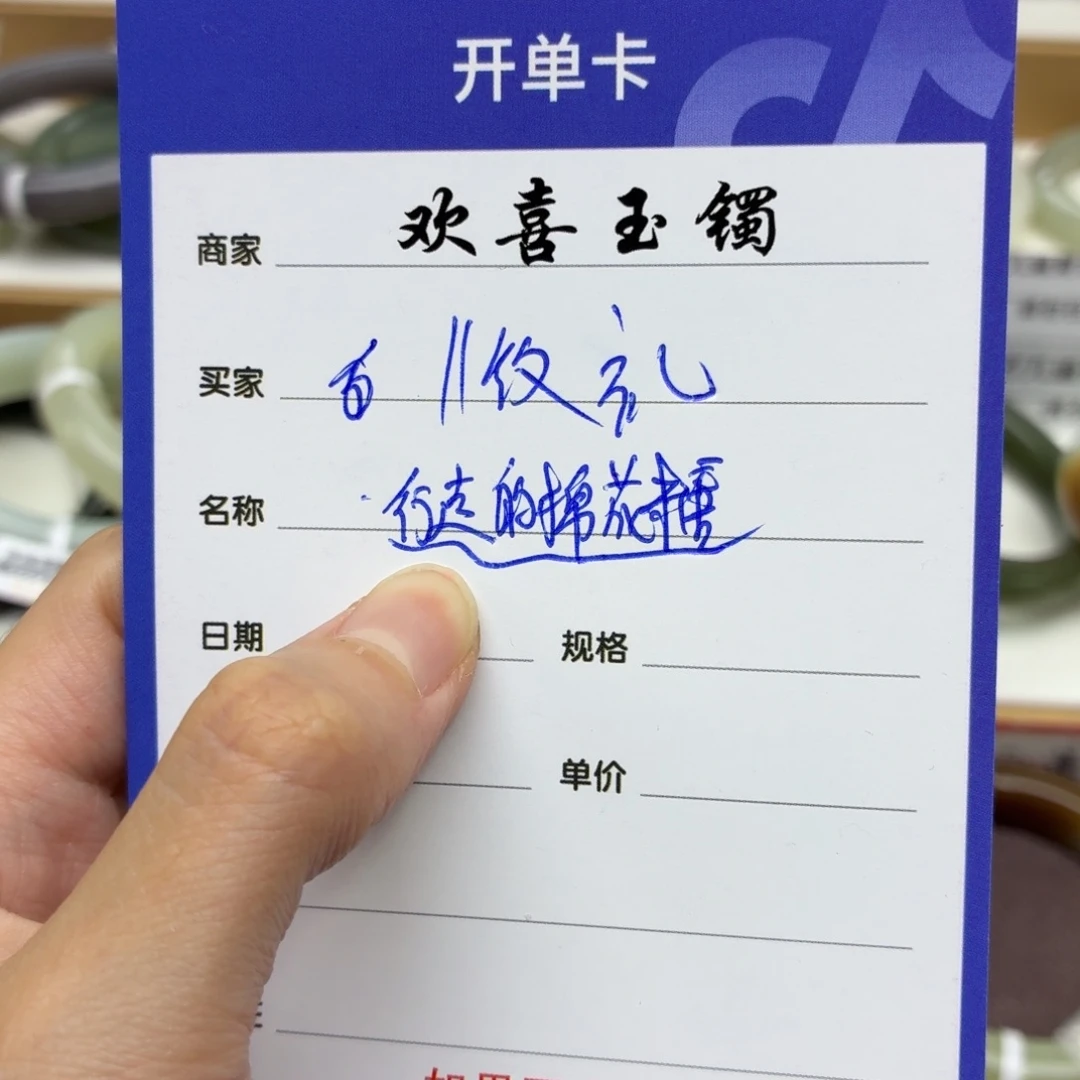 开单卡
商家 欢喜玉镯
买家
名称 行走的棉花
日期 规格
单价